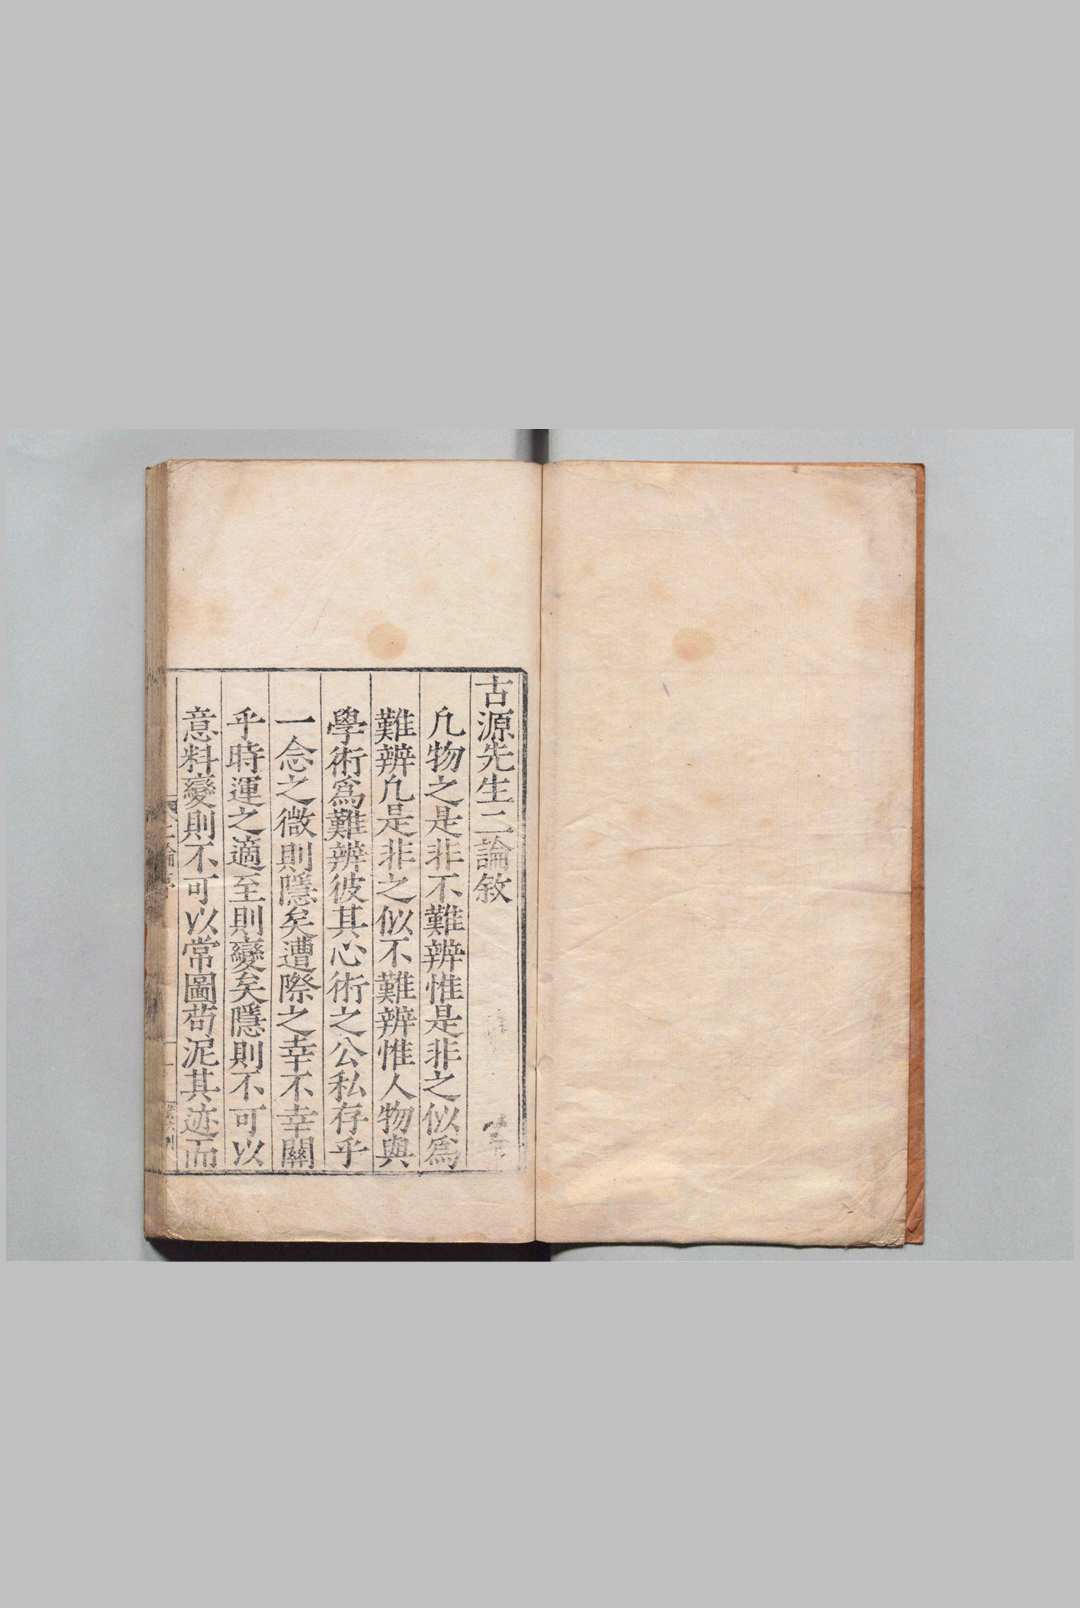 古源先生二論敘
凡物之是非不難辨惟是非之似為
難辨凡是非之似不難辨惟人物與
學術為難辨彼其心術之公私存乎
一念之微則隱矣遭際之幸不幸關
乎時運之適至則變矣隱則不可以
意料變則不可以常圖苟泥其迹而
二論序